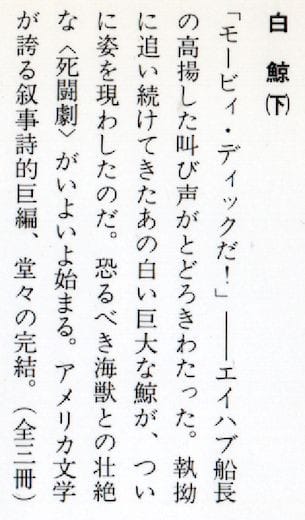 白鯨㊦
「モービィ・ディックだ！」――エイハブ船長
の高揚した叫び声がとどろきわたった。執拗
に追い続けてきたあの白い巨大な鯨が、つい
に姿を現わしたのだ。恐るべき海獣との壮絶
な〈死闘劇〉がいよいよ始まる。アメリカ文学
が誇る叙事詩的巨編、堂々の完結。（全三冊）